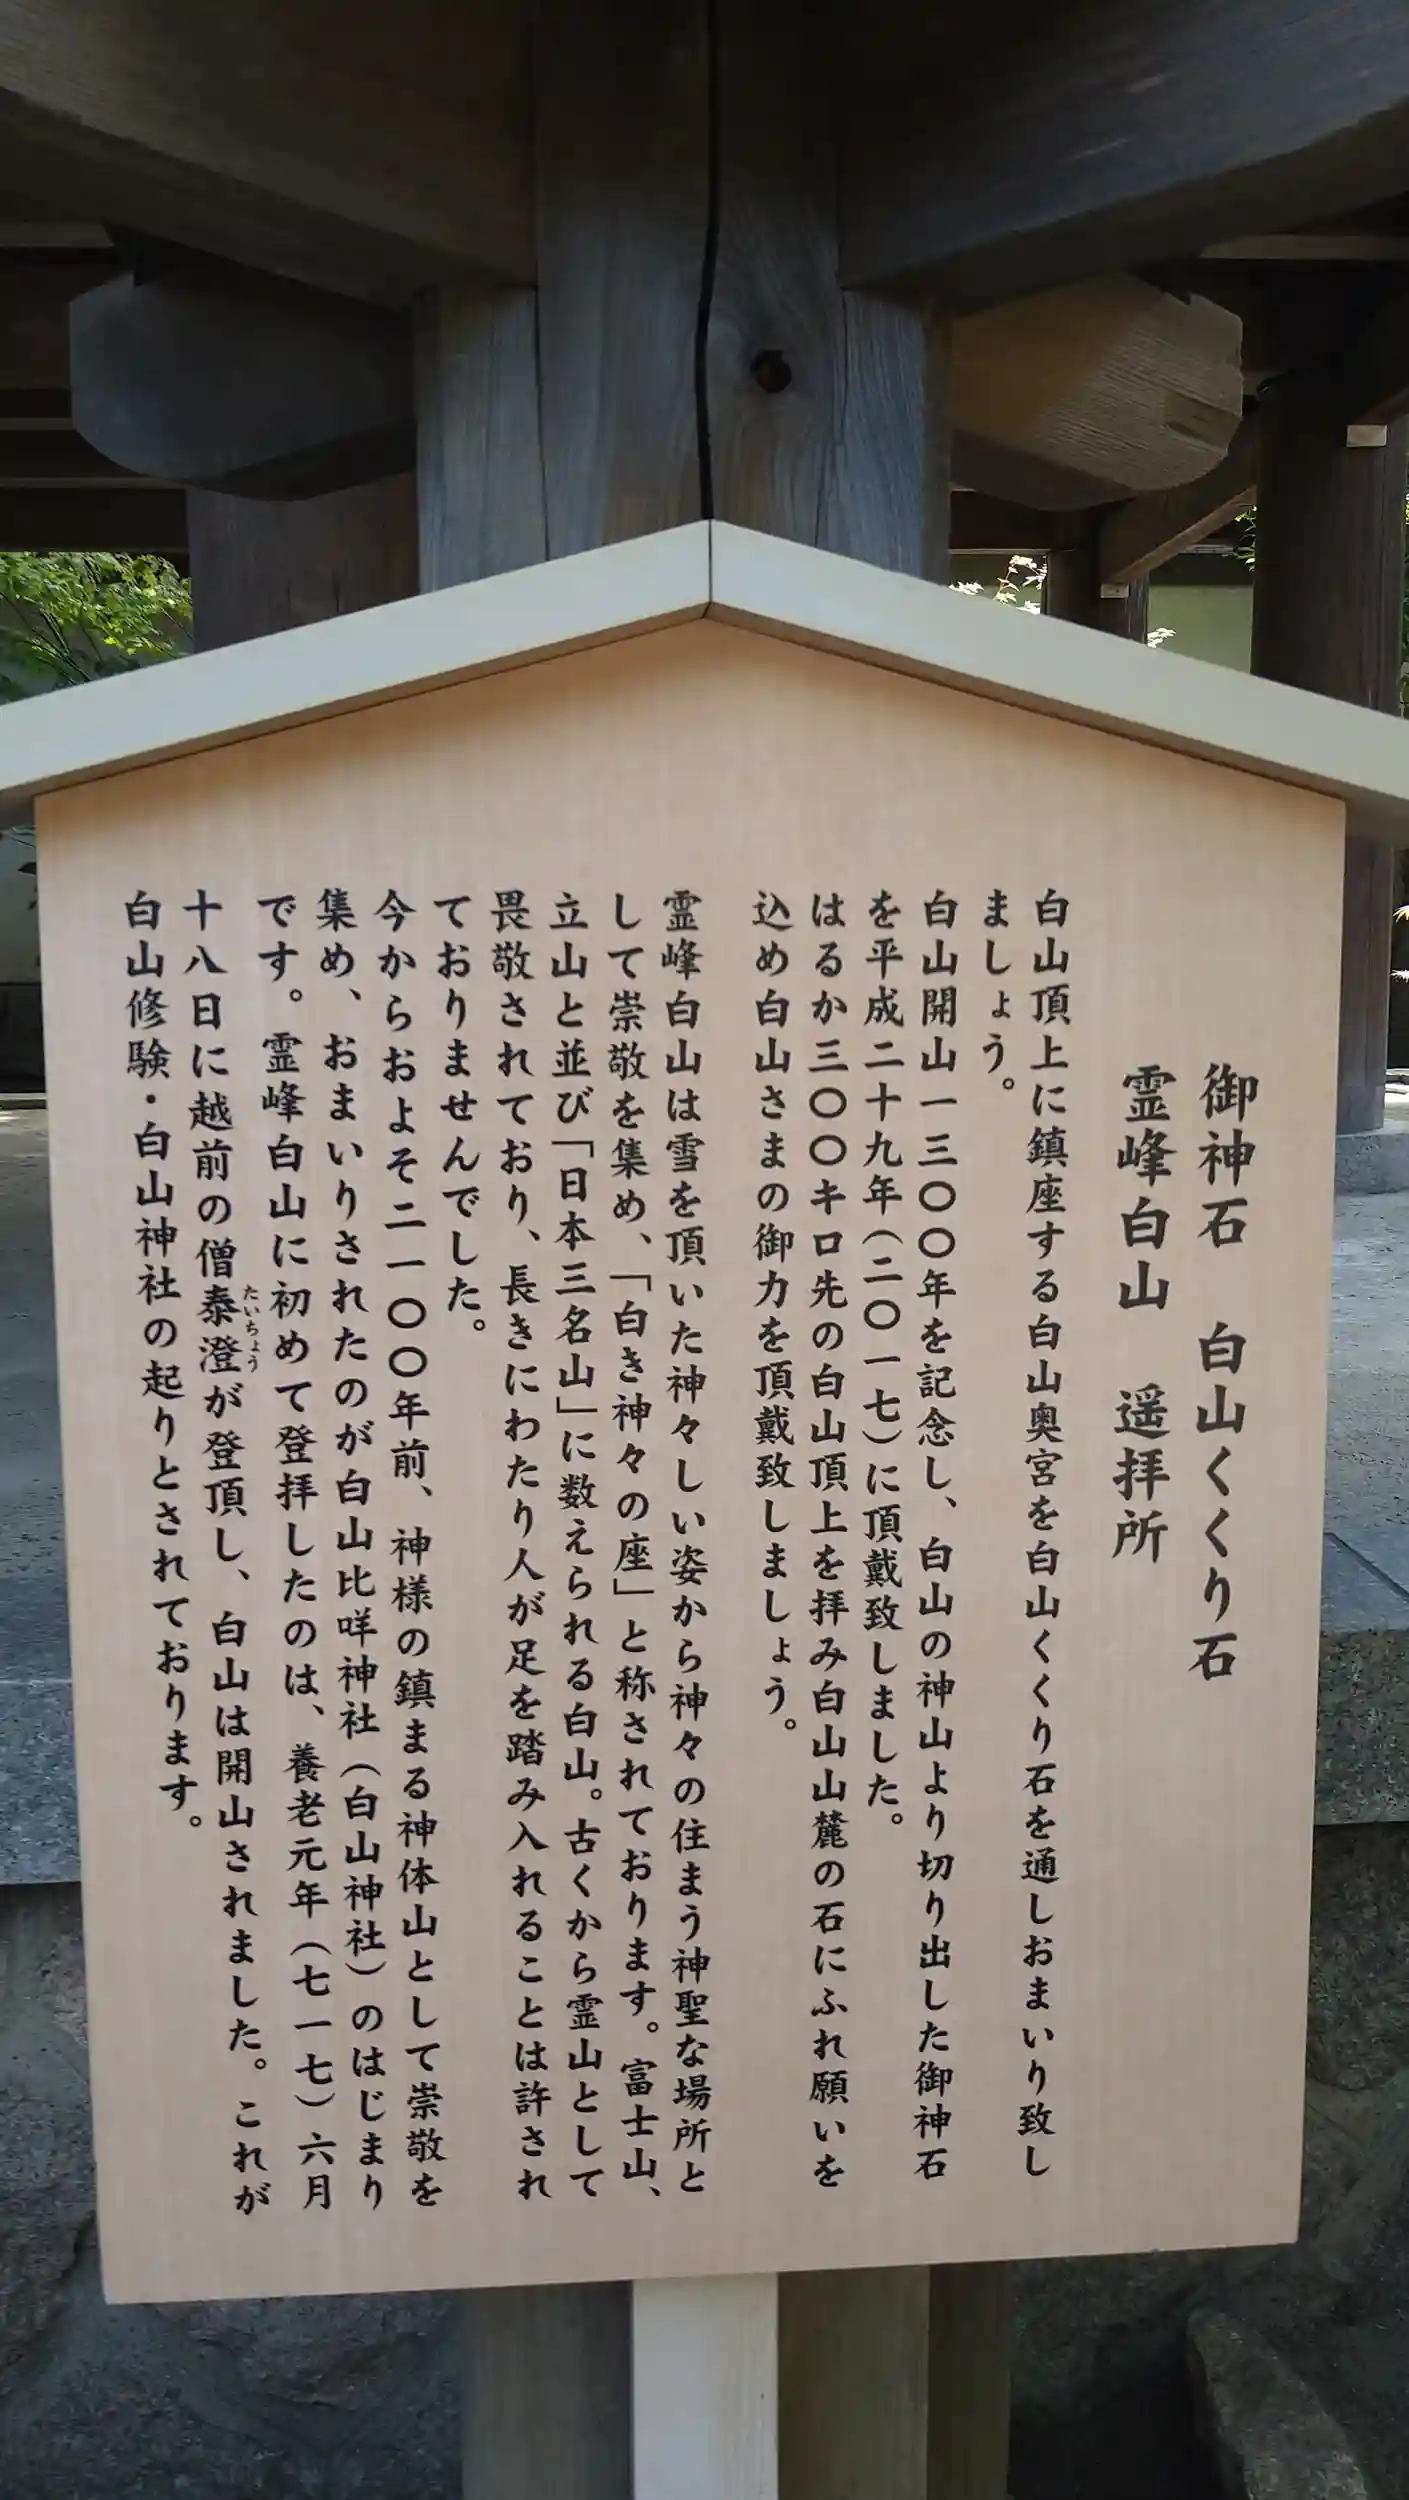 御神石　白山くくり石
霊峰白山　遥拝所
白山頂上に鎮座する白山奥宮を白山くくり石を通しおまいり致し
ましょう。
白山開山一三〇〇年を記念し、白山の神山より切り出した御神石
を平成二十九年（二〇一七）に頂戴致しました。
はるか三〇〇キロ先の白山頂上を拝み白山山麓の石にふれ願いを
込め白山さまの御力を頂戴致しましょう。
霊峰白山は雪を頂いた神々しい姿から神々の住まう神聖な場所と
して崇敬を集め、「白き神々の座」と称されております。富士山、
立山と並び「日本三名山」に数えられる白山。古くから霊山として
畏敬されており、長きにわたり人が足を踏み入れることは許され
ておりませんでした。
今からおよそ二一〇〇年前、神様の鎮まる神体山として崇敬を
集め、おまいりされたのが白山比咩神社（白山神社）のはじまり
です。霊峰白山に初めて登拝したのは、養老元年（七一七）六月
十八日に越前の僧泰澄たいちょうが登頂し、白山は開山されました。これが
白山修験・白山神社の起りとされております。